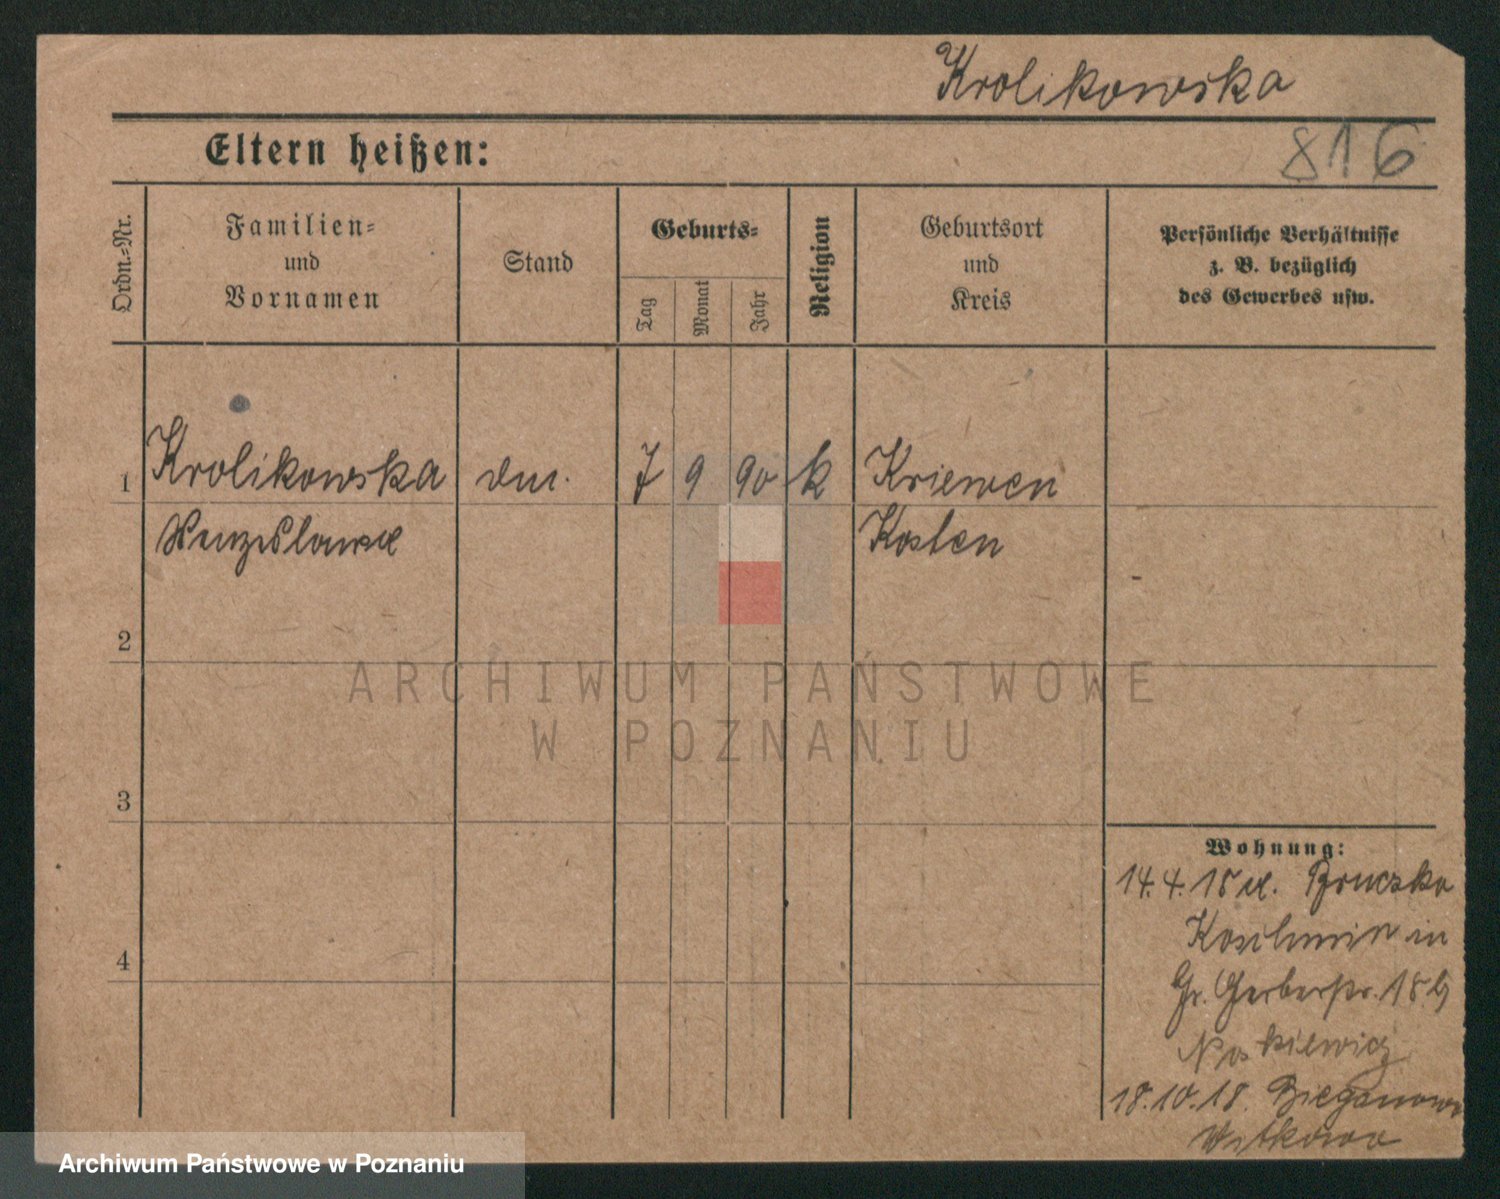 Krolikowska
Eltern heißen:
816
Ordn.-Nr.
Familien-
und
Vornamen
Stand
Geburts-
Tag
Monat
Jahr
Religion
Geburtsort
und
Kreis
Persönliche Verhältnisse
z. B. bezüglich
des Gewerbes usw.
1 Krolikowska 7 9 90 k Kriewen
Kosten
2
3
4
Wohnung:
14.4.18
Koschmin in
Gr. Gerberstr. 18
18.10.18.
Witkowo
ARCHIWUM PAŃSTWOWE
W POZNANIU
Archiwum Państwowe w Poznaniu